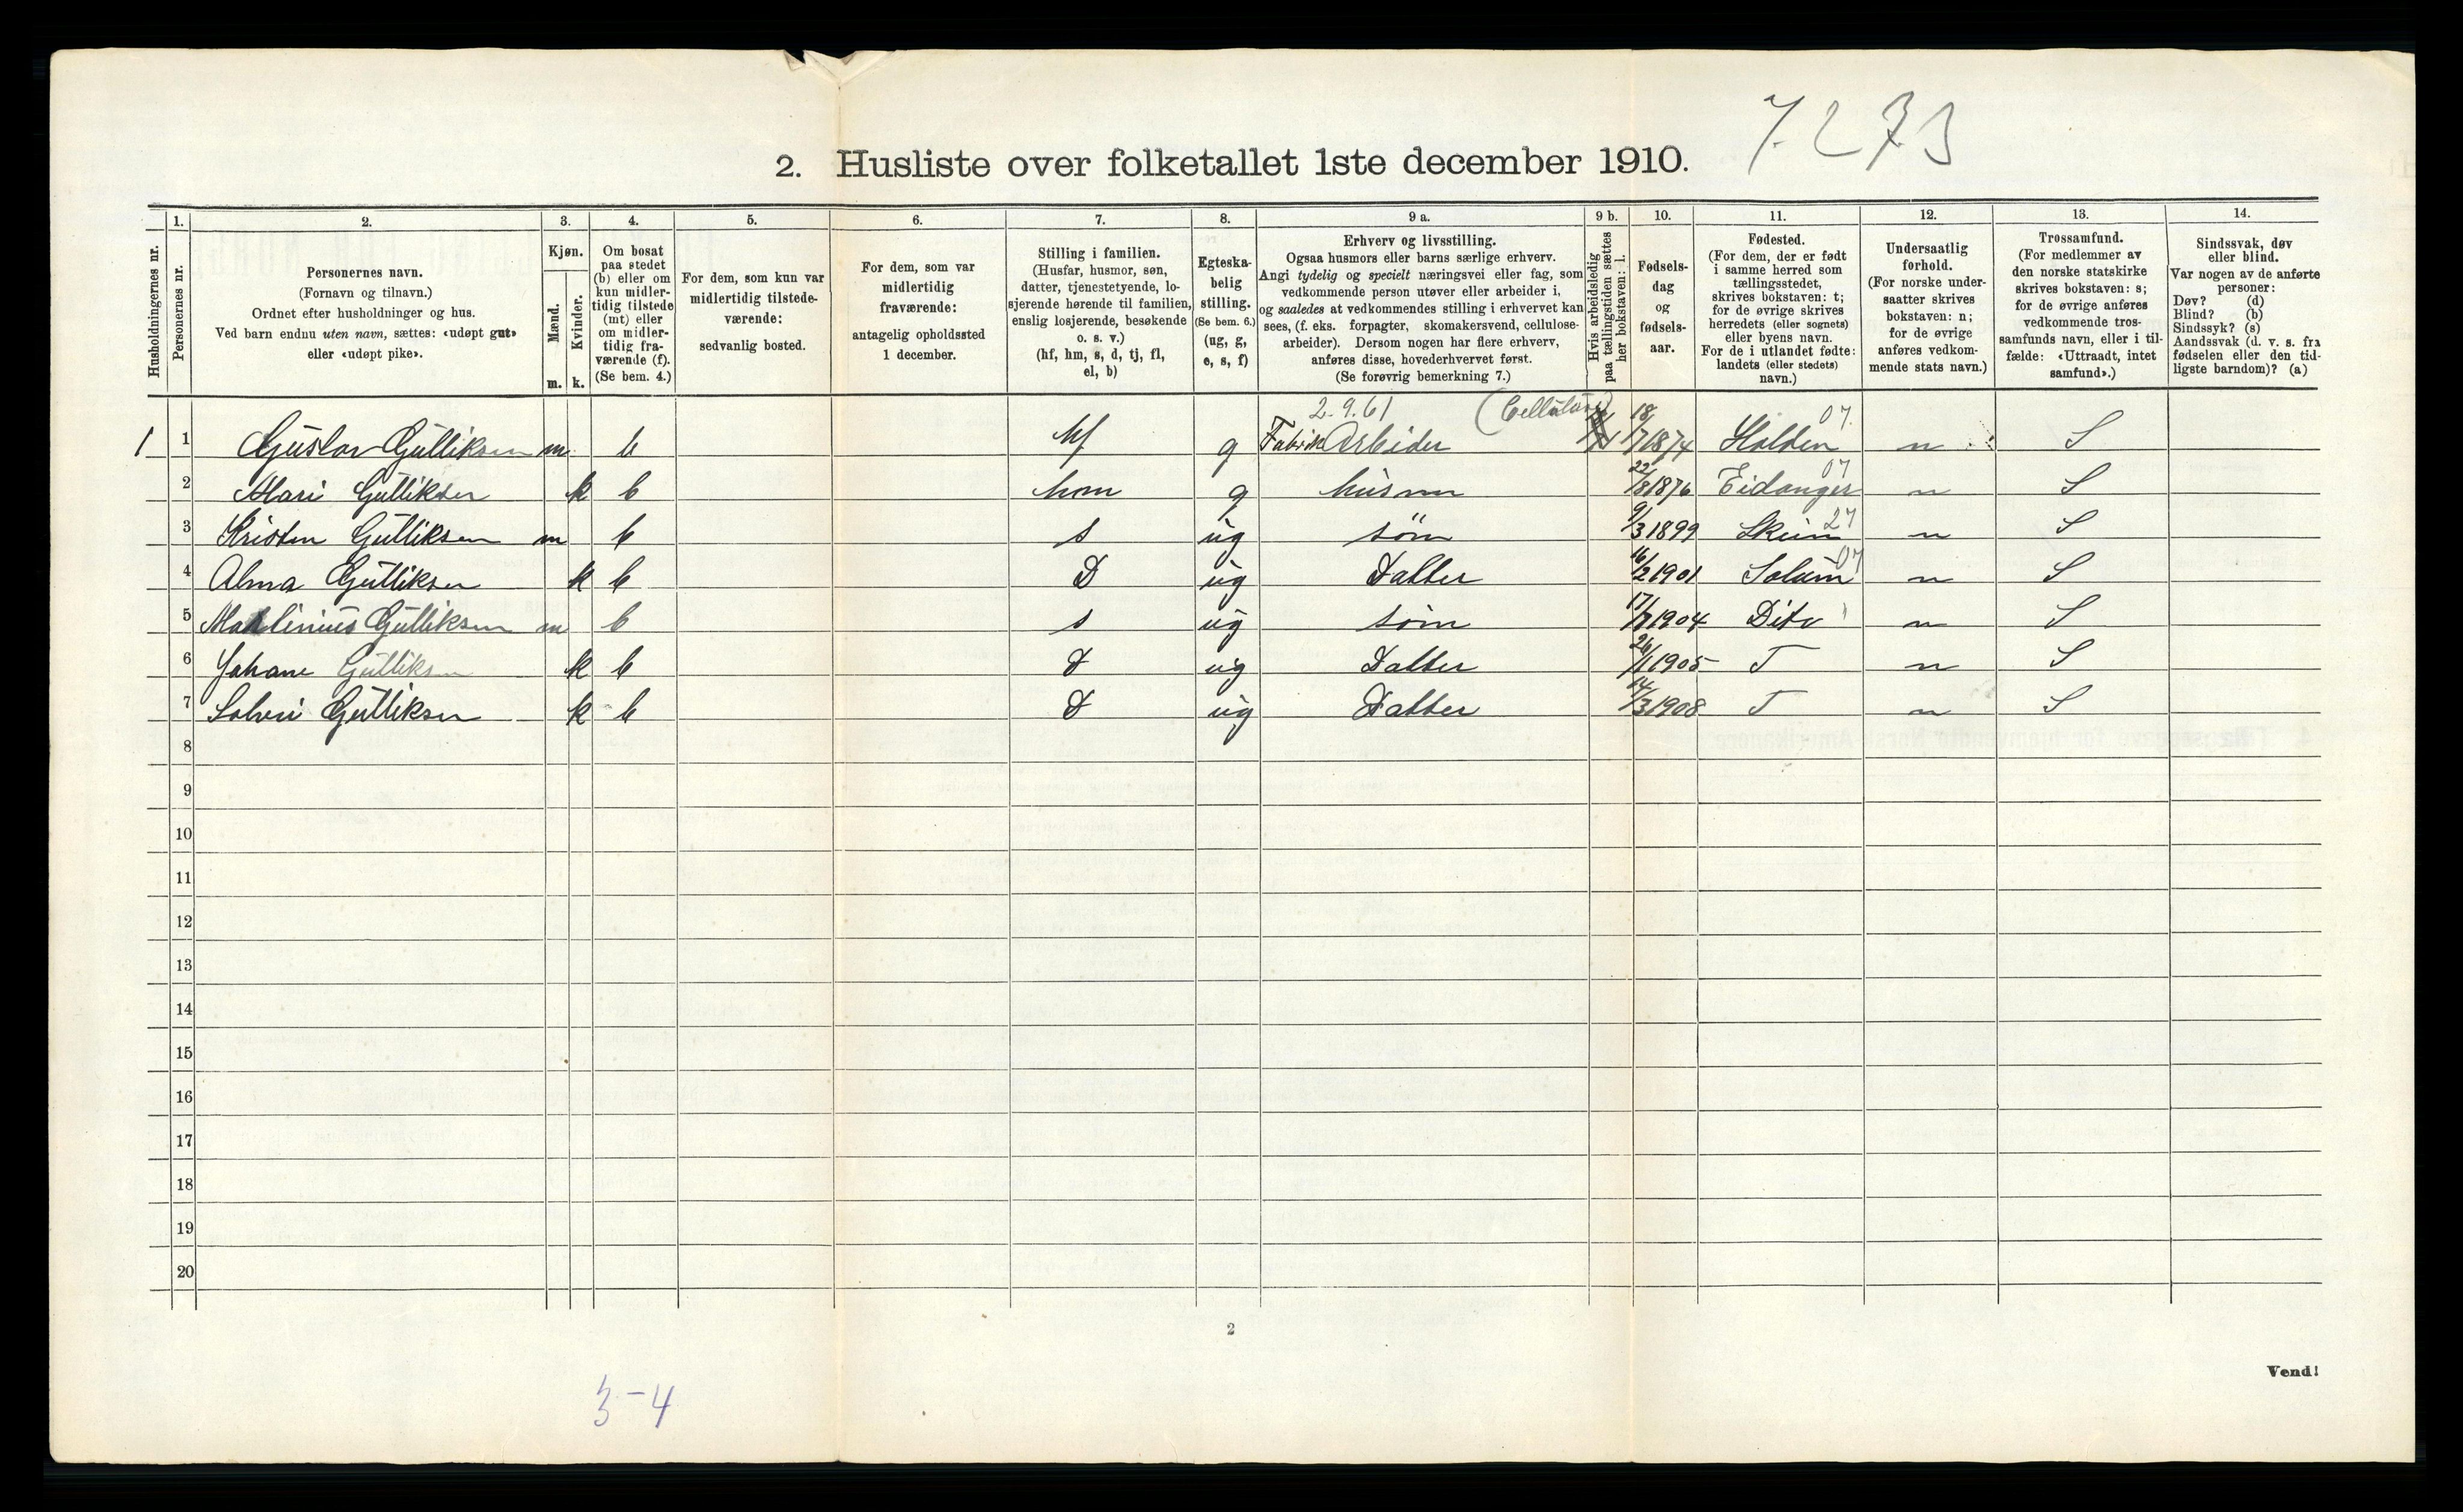 7.273
2. Husliste over folketallet 1ste december 1910.
Husholdningernes nr.
1.
Personernes nr.
2.
Personernes navn.
(Fornavn og tilnavn.)
Ordnet efter husholdninger og hus.
Ved barn endnu uten navn, sættes: «udøpt gut»
eller «udøpt pike».
3.
Kjøn.
Mænd.
Kvinder.
m. k.
4.
Om bosat
paa stedet
(b) eller om
kun midler-
tidig tilstede
(mt) eller
om midler-
tidig fra-
værende (f).
(Se bem. 4.)
5.
For dem, som kun var
midlertidig tilstede-
værende:
sedvanlig bosted.
6.
For dem, som var
midlertidig
fraværende:
antagelig opholdssted
1 december.
7.
Stilling i familien.
(Husfar, husmor, søn,
datter, tjenestetyende, lo-
sjerende hørende til familien,
enslig losjerende, besøkende
o. s. v.)
(hf, hm, s, d, tj, fl,
el, b)
8.
Egteska-
belig
stilling.
(Se bem. 6.)
(ug, g,
e, s, f)
9 a.
Erhverv og livsstilling.
Ogsaa husmors eller barns særlige erhverv.
Angi tydelig og specielt næringsvei eller fag, som
vedkommende person utøver eller arbeider i,
og saaledes at vedkommendes stilling i erhvervet kan
sees, (f. eks. forpagter, skomakersvend, cellulose-
arbeider). Dersom nogen har flere erhverv,
anføres disse, hovederhvervet først.
(Se forøvrig bemerkning 7.)
9 b.
Hvis arbeidsledig
paa tællingstiden sættes
her bokstaven: l.
10.
Fødsels-
dag
og
fødsels-
aar.
11.
Fødested.
(For dem, der er født
i samme herred som
tællingsstedet,
skrives bokstaven: t;
for de øvrige skrives
herredets (eller sognets)
eller byens navn.
For de i utlandet fødte:
landets (eller stedets)
navn.)
12.
Undersaatlig
forhold.
(For norske under-
saatter skrives
bokstaven: n;
for de øvrige
anføres vedkom-
mende stats navn.)
13.
Trossamfund.
(For medlemmer av
den norske statskirke
skrives bokstaven: s;
for de øvrige anføres
vedkommende tros-
samfunds navn, eller i til-
fælde: «Uttraadt, intet
samfund».)
14.
Sindssvak, døv
eller blind.
Var nogen av de anførte
personer:
Døv? (d)
Blind? (b)
Sindssyk? (s)
Aandssvak (d. v. s. fra
fødselen eller den tid-
ligste barndom)? (a)
2.9.61 (Cellulose) 07.
1 1 Gustav Gulliksen m b hf g Fabrik Arbeider 18/7 1874 Holden n S
07
2 Mari Gulliksen k b hm g husmor 22/8 1876 Eidanger n S
27
3 Kristen Gulliksen m b s ug søn 9/3 1899 Skien n S
07
4 Alma Gulliksen k b D ug Datter 16/2 1901 Solum n S
5 Gulliksen m b s ug søn 17/7 1904 Dito n S
6 Johane Gulliksen k b D ug Datter 26/1 1905 T n S
7 Solvei Gulliksen k b D ug Datter 14/3 1908 T n S
8
9
10
11
12
13
14
15
16
17
18
19
20
2
Vend!
3-4